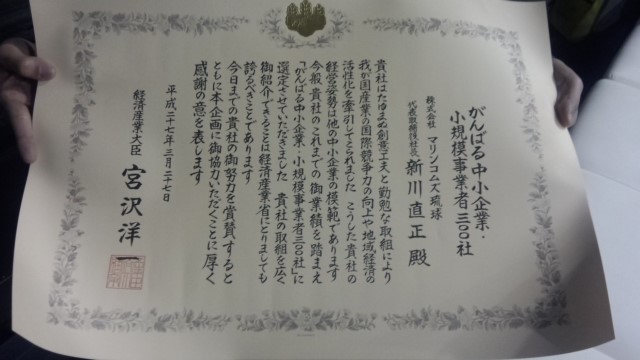 がんばる中小企業・
小規模事業者三〇〇社
株式会社 マリンコムズ琉球
代表取締役社長 新川直正 殿
貴社はたゆまぬ創意工夫と勤勉な取組により
我が国産業の国際競争力の向上や地域経済の
活性化を牽引してこられました こうした貴社の
経営姿勢は他の中小企業の模範であります
今般 貴社のこれまでの御業績を踏まえ
「がんばる中小企業・小規模事業者三〇〇社」に
選定させていただきました 貴社の取組を広く
御紹介できることは経済産業省にとりましても
誇るべきことであります
今日までの貴社の御努力を賞賛すると
ともに本企画に御協力いただくことに厚く
感謝の意を表します
平成二十七年三月二十七日
経済産業大臣 宮沢洋一